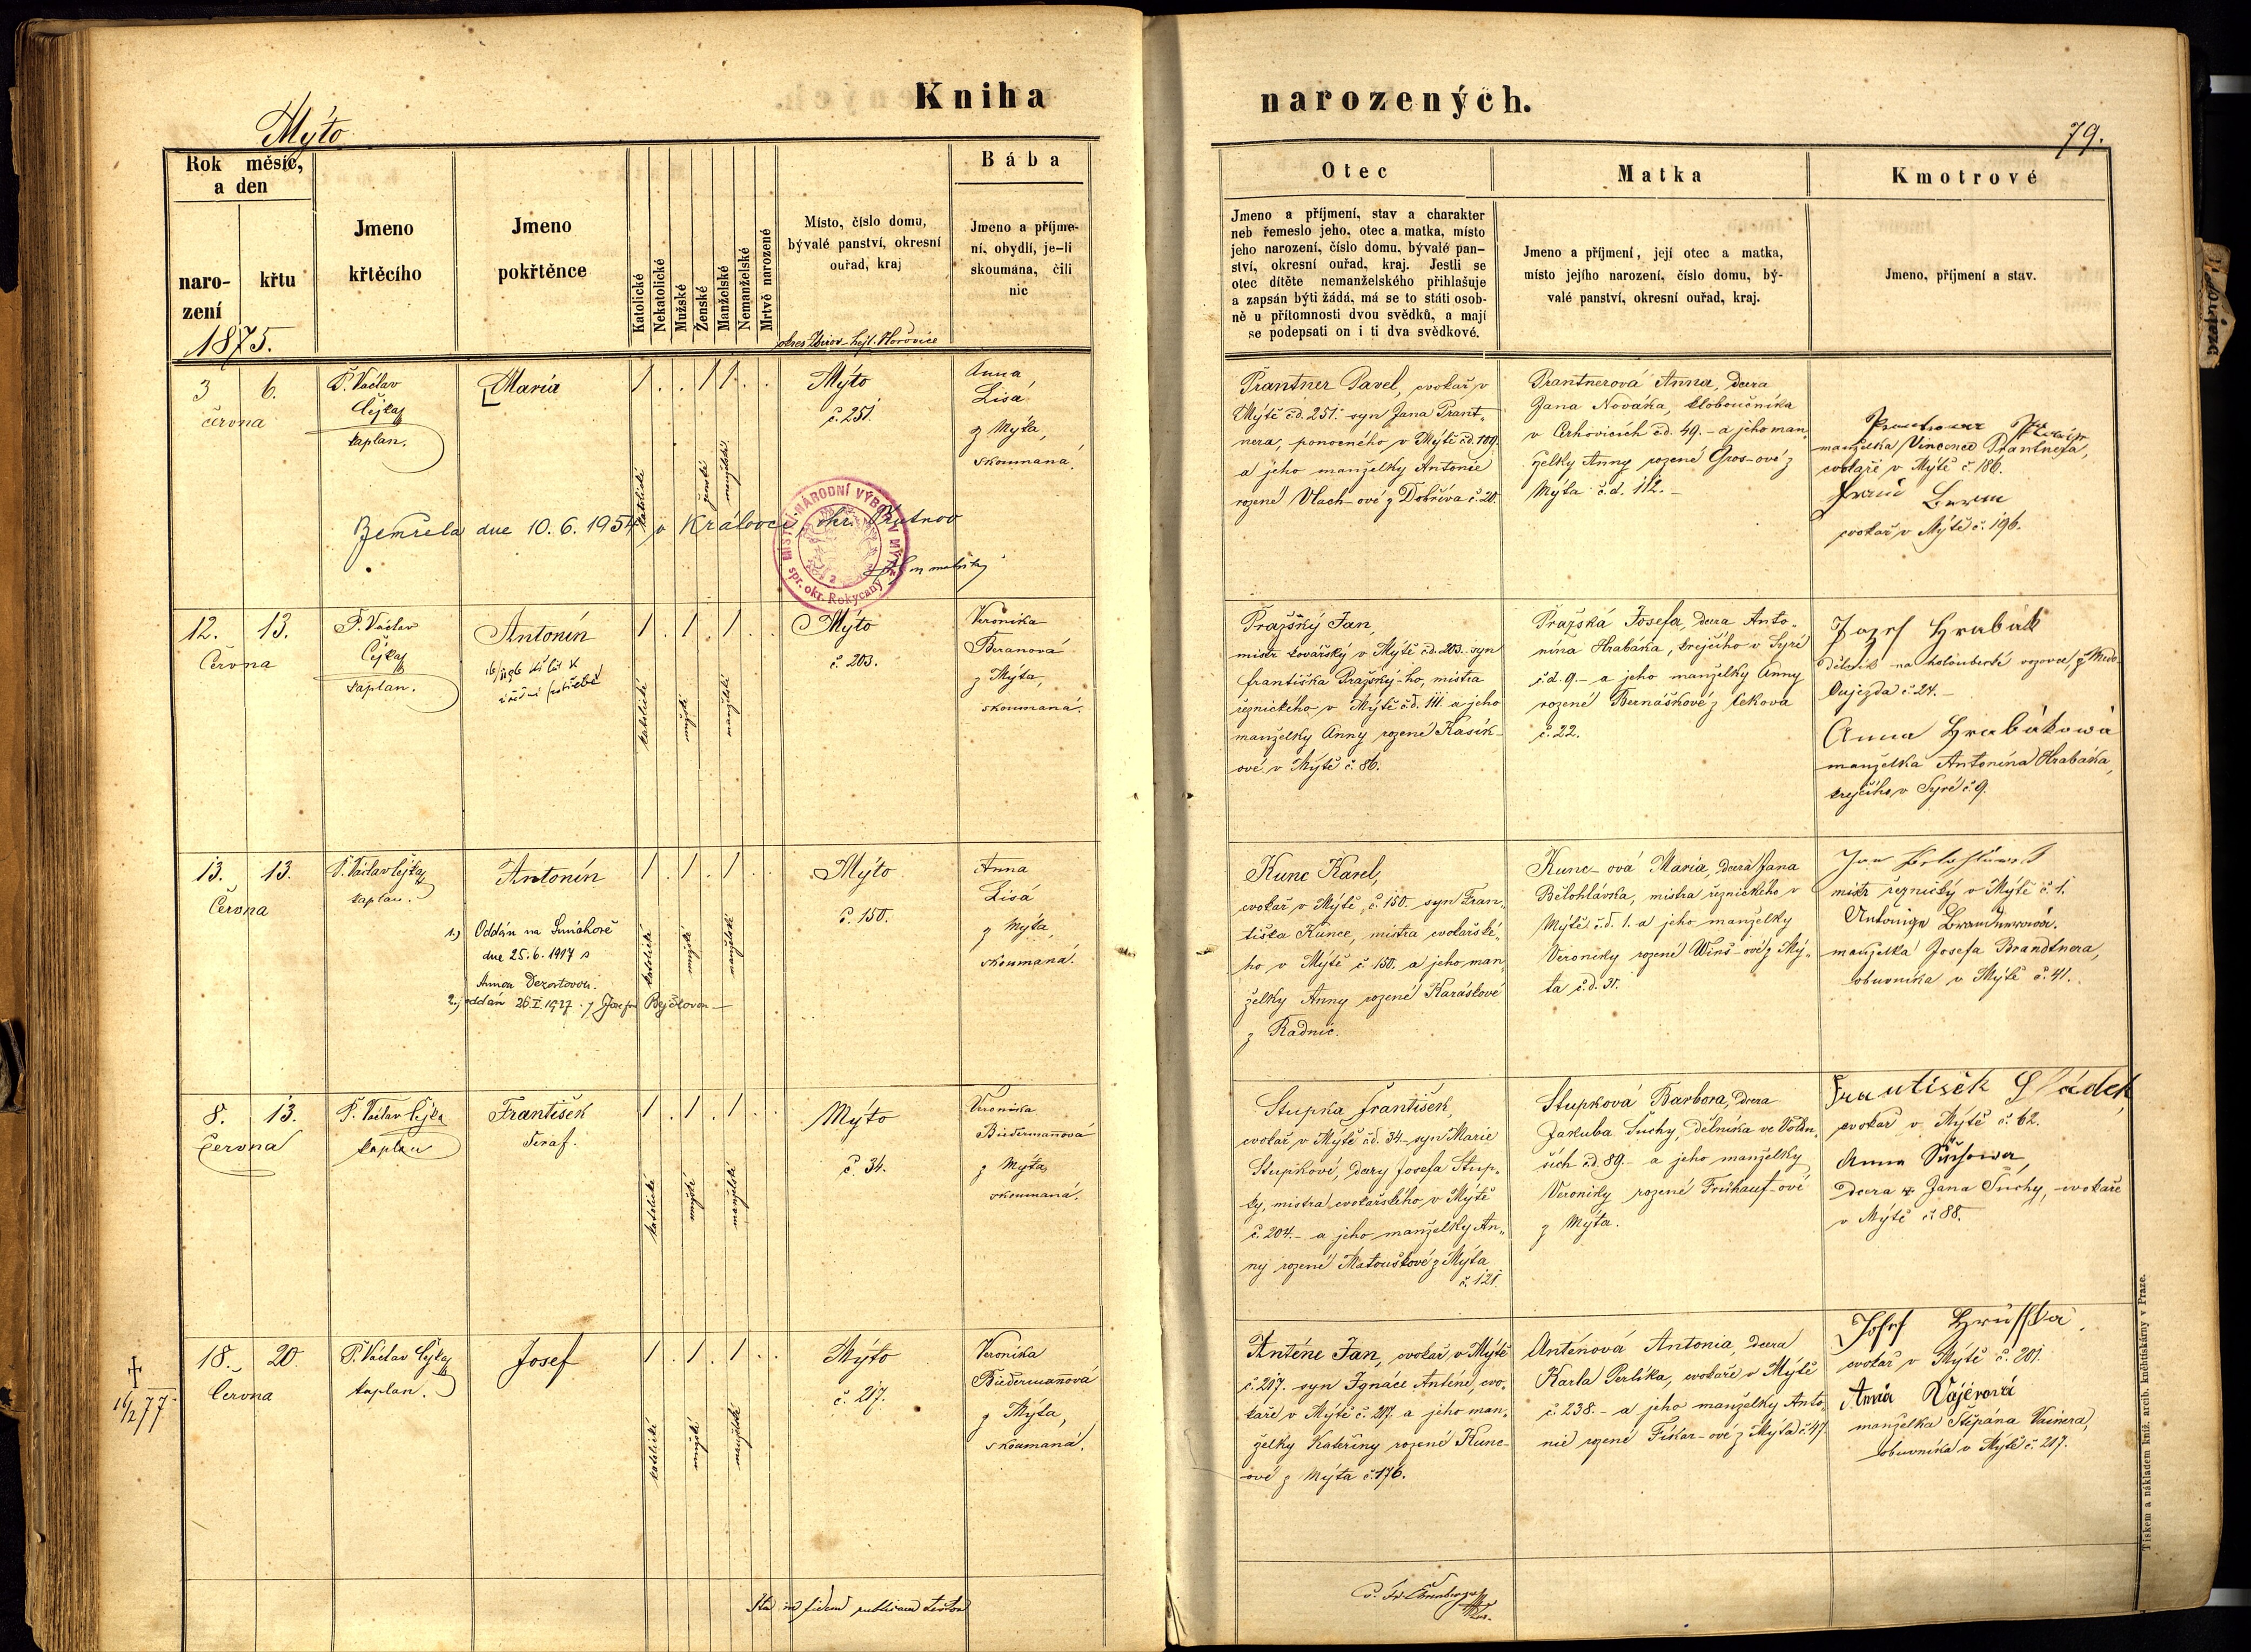 Kniha
narozených.
Mýto
79.
Rok měsíc,
a den
naro-
zení
křtu
1875.
Jmeno
křtěcího
Jmeno
pokřtěnce
Katolické
Nekatolické
Mužské
Ženské
Manželské
Nemanželské
Mrtvě narozené
Místo, číslo domu,
bývalé panství, okresní
ouřad, kraj
okres Zbirov hejt. Hořovice
Bába
Jmeno a příjme-
ní, obydlí, je-li
skoumána, čili
nic
Otec
Jmeno a příjmení, stav a charakter
neb řemeslo jeho, otec a matka, místo
jeho narození, číslo domu, bývalé pan-
ství, okresní ouřad, kraj. Jestli se
otec dítěte nemanželského přihlašuje
a zapsán býti žádá, má se to státi osob-
ně u přítomnosti dvou svědků, a mají
se podepsati on i ti dva svědkové.
Matka
Jmeno a příjmení, její otec a matka,
místo jejího narození, číslo domu, bý-
valé panství, okresní ouřad, kraj.
Kmotrové
Jmeno, příjmení a stav.
3 6.
června
P. Václav
Čejka
kaplan.
Maria
1 . . 1 1 . .
katolické
ženské
manželské
Mýto
č. 251.
Anna
Lisá
z Mýta,
skoumaná.
Zemřela dne 10.6.1954 v Královci, okr. Trutnov
MÍSTNÍ NÁRODNÍ VÝBOR V MÝTĚ
spr. okr. Rokycany
Prantner Pavel, cvokař v
Mýtě č.d. 251. syn Jana Prant-
nera, ponocného v Mýtě č.d. 109.
a jeho manželky Antonie
rozené Vlach-ové z Dobříva č. 20.
Prantnerová Anna, dcera
Jana Nováka, kloboučníka
v Cerhovicích č.d. 49. - a jeho man-
želky Anny rozené Gros-ové z
Mýta č.d. 112. -
manželka Vincence Prantnera,
cvokaře v Mýtě č. 186.
cvokař v Mýtě č. 196.
12. 13.
Června
P. Václav
Čejka
kaplan.
Antonín
1 . 1 . 1 . .
katolické
mužské
manželské
Mýto
č. 203.
Veronika
Beranová
z Mýta,
skoumaná.
Pražský Jan,
mistr kovářský v Mýtě č.d. 203. syn
Františka Pražský-ho, mistra
řeznického v Mýtě č.d. 111. a jeho
manželky Anny rozené Kasík-
ové v Mýtě č. 86.
Pražská Josefa, dcera Anto-
nína Hrabáka, krejčího v Syré
č.d. 9. - a jeho manželky Anny
rozené Bernáškové z Cekova
č. 22.
Jozef Hrabák
Oujezda č. 24. -
Anna Hrabákowá
manželka Antonína Hrabáka,
krejčího v Syré č. 9.
13. 13.
Června
P. Václav Čejka
kaplan.
Antonín
1.) Oddán na Smíchově
dne 25.6.1917 s
Annou Dezortovou.
2.) oddán 26.I.1927. s Josefou Bejčkovou -
1 . 1 . 1 . .
katolické
mužské
manželské
Mýto
č. 150.
Anna
Lisá
z Mýta,
skoumaná.
Kunc Karel,
cvokař v Mýtě, č. 150. syn Fran-
tiška Kunce, mistra cvokařské-
ho v Mýtě č. 150. a jeho man-
želky Anny rozené Karáskové
z Radnic.
Kunc-ová Maria, dcera Jana
Bělohlávka, mistra řeznického v
Mýtě č.d. 1. a jeho manželky
Veroniky rozené Winš-ové z Mý-
ta č.d. 31.
mistr řeznický v Mýtě č. 1.
manželka Josefa Brandtnera,
obuvníka v Mýtě č. 41.
8. 13.
Června
P. Václav Čejka
kaplan
František
Seraf.
1 . 1 . 1 . .
katolické
mužské
manželské
Mýto
č. 34.
Veronika
Biedermanová
z Mýta,
skoumaná.
Stupka František,
cvokař v Mýtě č.d. 34. syn Marie
Stupkové, dcery Josefa Stup-
ky, mistra cvokařského v Mýtě
č. 204. - a jeho manželky An-
ny rozené Matouškové z Mýta
č. 121.
Stupková Barbora, dcera
Jakuba Suchy, dělníka ve Voldu-
ších č.d. 89. - a jeho manželky
Veroniky rozené Frühauf-ové
z Mýta.
František Sládek,
cvokař v Mýtě č. 62.
Anna
dcera + Jana Suchy, cvokaře
v Mýtě č. 88.
†
16/2 77
18. 20.
Června
P. Václav Čejka
kaplan.
Josef
1 . 1 . 1 . .
katolické
mužské
manželské
Mýto
č. 217.
Veronika
Biedermanová
z Mýta,
skoumaná.
Anténe Jan, cvokař v Mýtě
č. 217. syn Ignáce Anténe, cvo-
kaře v Mýtě č. 217. a jeho man-
želky Kateřiny rozené Kunc-
ové z Mýta č. 176.
Anténová Antonia, dcera
Karla Perlíka, cvokaře v Mýtě
č. 238. - a jeho manželky Anto-
nie rozené Fikar-ové z Mýta č. 47.
Josef Hruška,
cvokař v Mýtě č. 201.
Anna Vajerová
manželka Štěpána Vainera,
obuvníka v Mýtě č. 217.
Ita in fidem publicam testor
Tiskem a nákladem kníž. arcib. knihtiskárny v Praze.